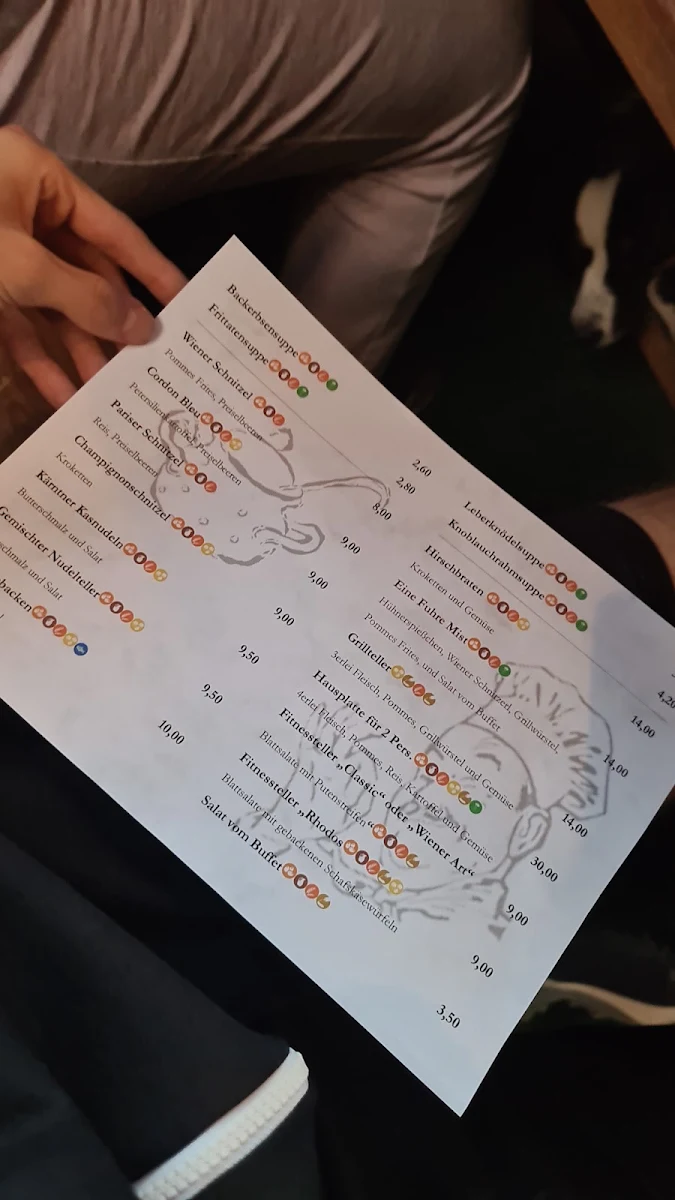 Backerbsensuppe 2,60
Frittatensuppe 2,80
Wiener Schnitzel 8,00
Pommes Frites, Preiselbeeren
Cordon Bleu 9,00
Petersilienkartoffel, Preiselbeeren
Pariser Schnitzel 9,00
Reis, Preiselbeeren
Champignonschnitzel 9,00
Kroketten
Kärntner Kasnudeln 9,50
Butterschmalz und Salat
Gemischter Nudelteller 9,50
schmalz und Salat
backen 10,00
Leberknödelsuppe
Knoblauchrahmsuppe 4,20
Hirschbraten 14,00
Kroketten und Gemüse
Eine Fuhre Mist 14,00
Hühnerspießchen, Wiener Schnitzel, Grillwürstel,
Pommes Frites, und Salat vom Buffet
Grillteller 14,00
3erlei Fleisch, Pommes, Grillwürstel und Gemüse
Hausplatte für 2 Pers. 30,00
4erlei Fleisch, Pommes, Reis, Kartoffel und Gemüse
Fitnessteller „Classic“ oder „Wiener Art“ 9,00
Blattsalate mit Putenstreifen
Fitnessteller „Rhodos“ 9,00
Blattsalate mit gebackenen Schafskäsewürfeln
Salat vom Buffet 3,50